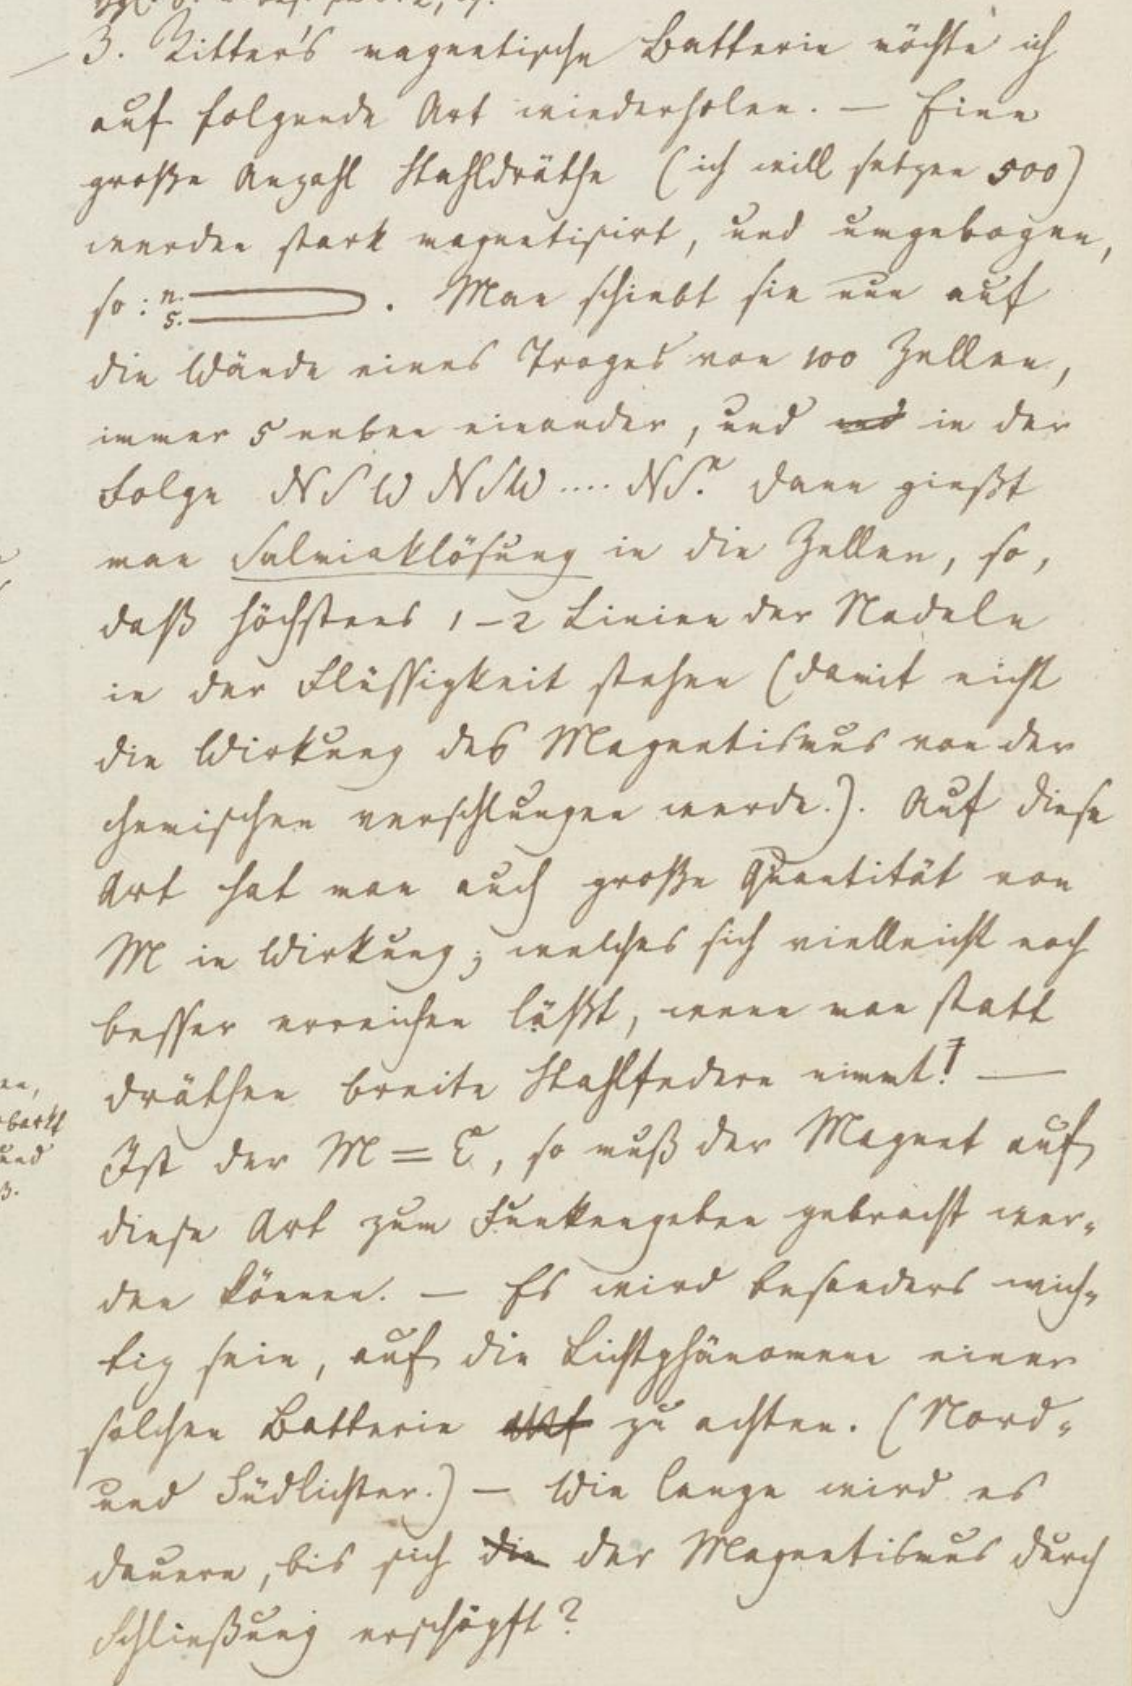 3. Ritter's magnetische Batterie möchte ich
auf folgende Art wiederholen. — Eine
große Anzahl Stahldräthe (ich will setzen 500)
werden stark magnetisirt, und umgebogen,
so: n. s. . Man schiebt sie nun auf
die Wände eines Troges von 100 Zellen,
immer 5 neben einander, und in der
Folge NSWNSW .... NS. Dann gießt
man Salmiaklösung in die Zellen, so,
daß höchstens 1–2 Linien der Nadeln
in der Flüssigkeit stehen (damit nicht
die Wirkung des Magnetismus von der
chemischen verschlungen werde.). Auf diese
Art hat man auch große Quantität von
M in Wirkung; welches sich vielleicht noch
besser erreichen läßt, wenn man statt
dräthen breite Stahlfedern nimmt! —
Ist der M = E, so muß der Magnet auf
diese Art zum Funkengeben gebracht wer-
den können. — Es wird besonders wich-
tig sein, auf die Lichtphänomene einer
solchen Batterie zu achten. (Nord-
und Südlichter.) — Wie lange wird es
dauern, bis sich die der Magnetismus durch
Schließung erschöpft?